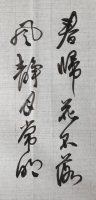 春归花不落
风静月常明